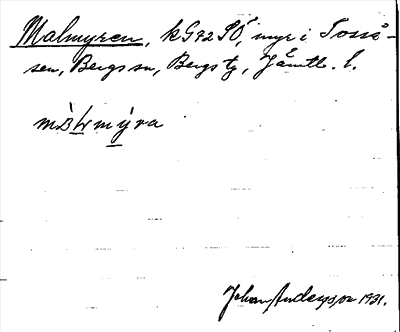 Malmyren, kG72SO, myr i Tosså-
sen, Bergs sn, Bergs tg, Jämtl. l.
myra
Johan Anderson 1931.